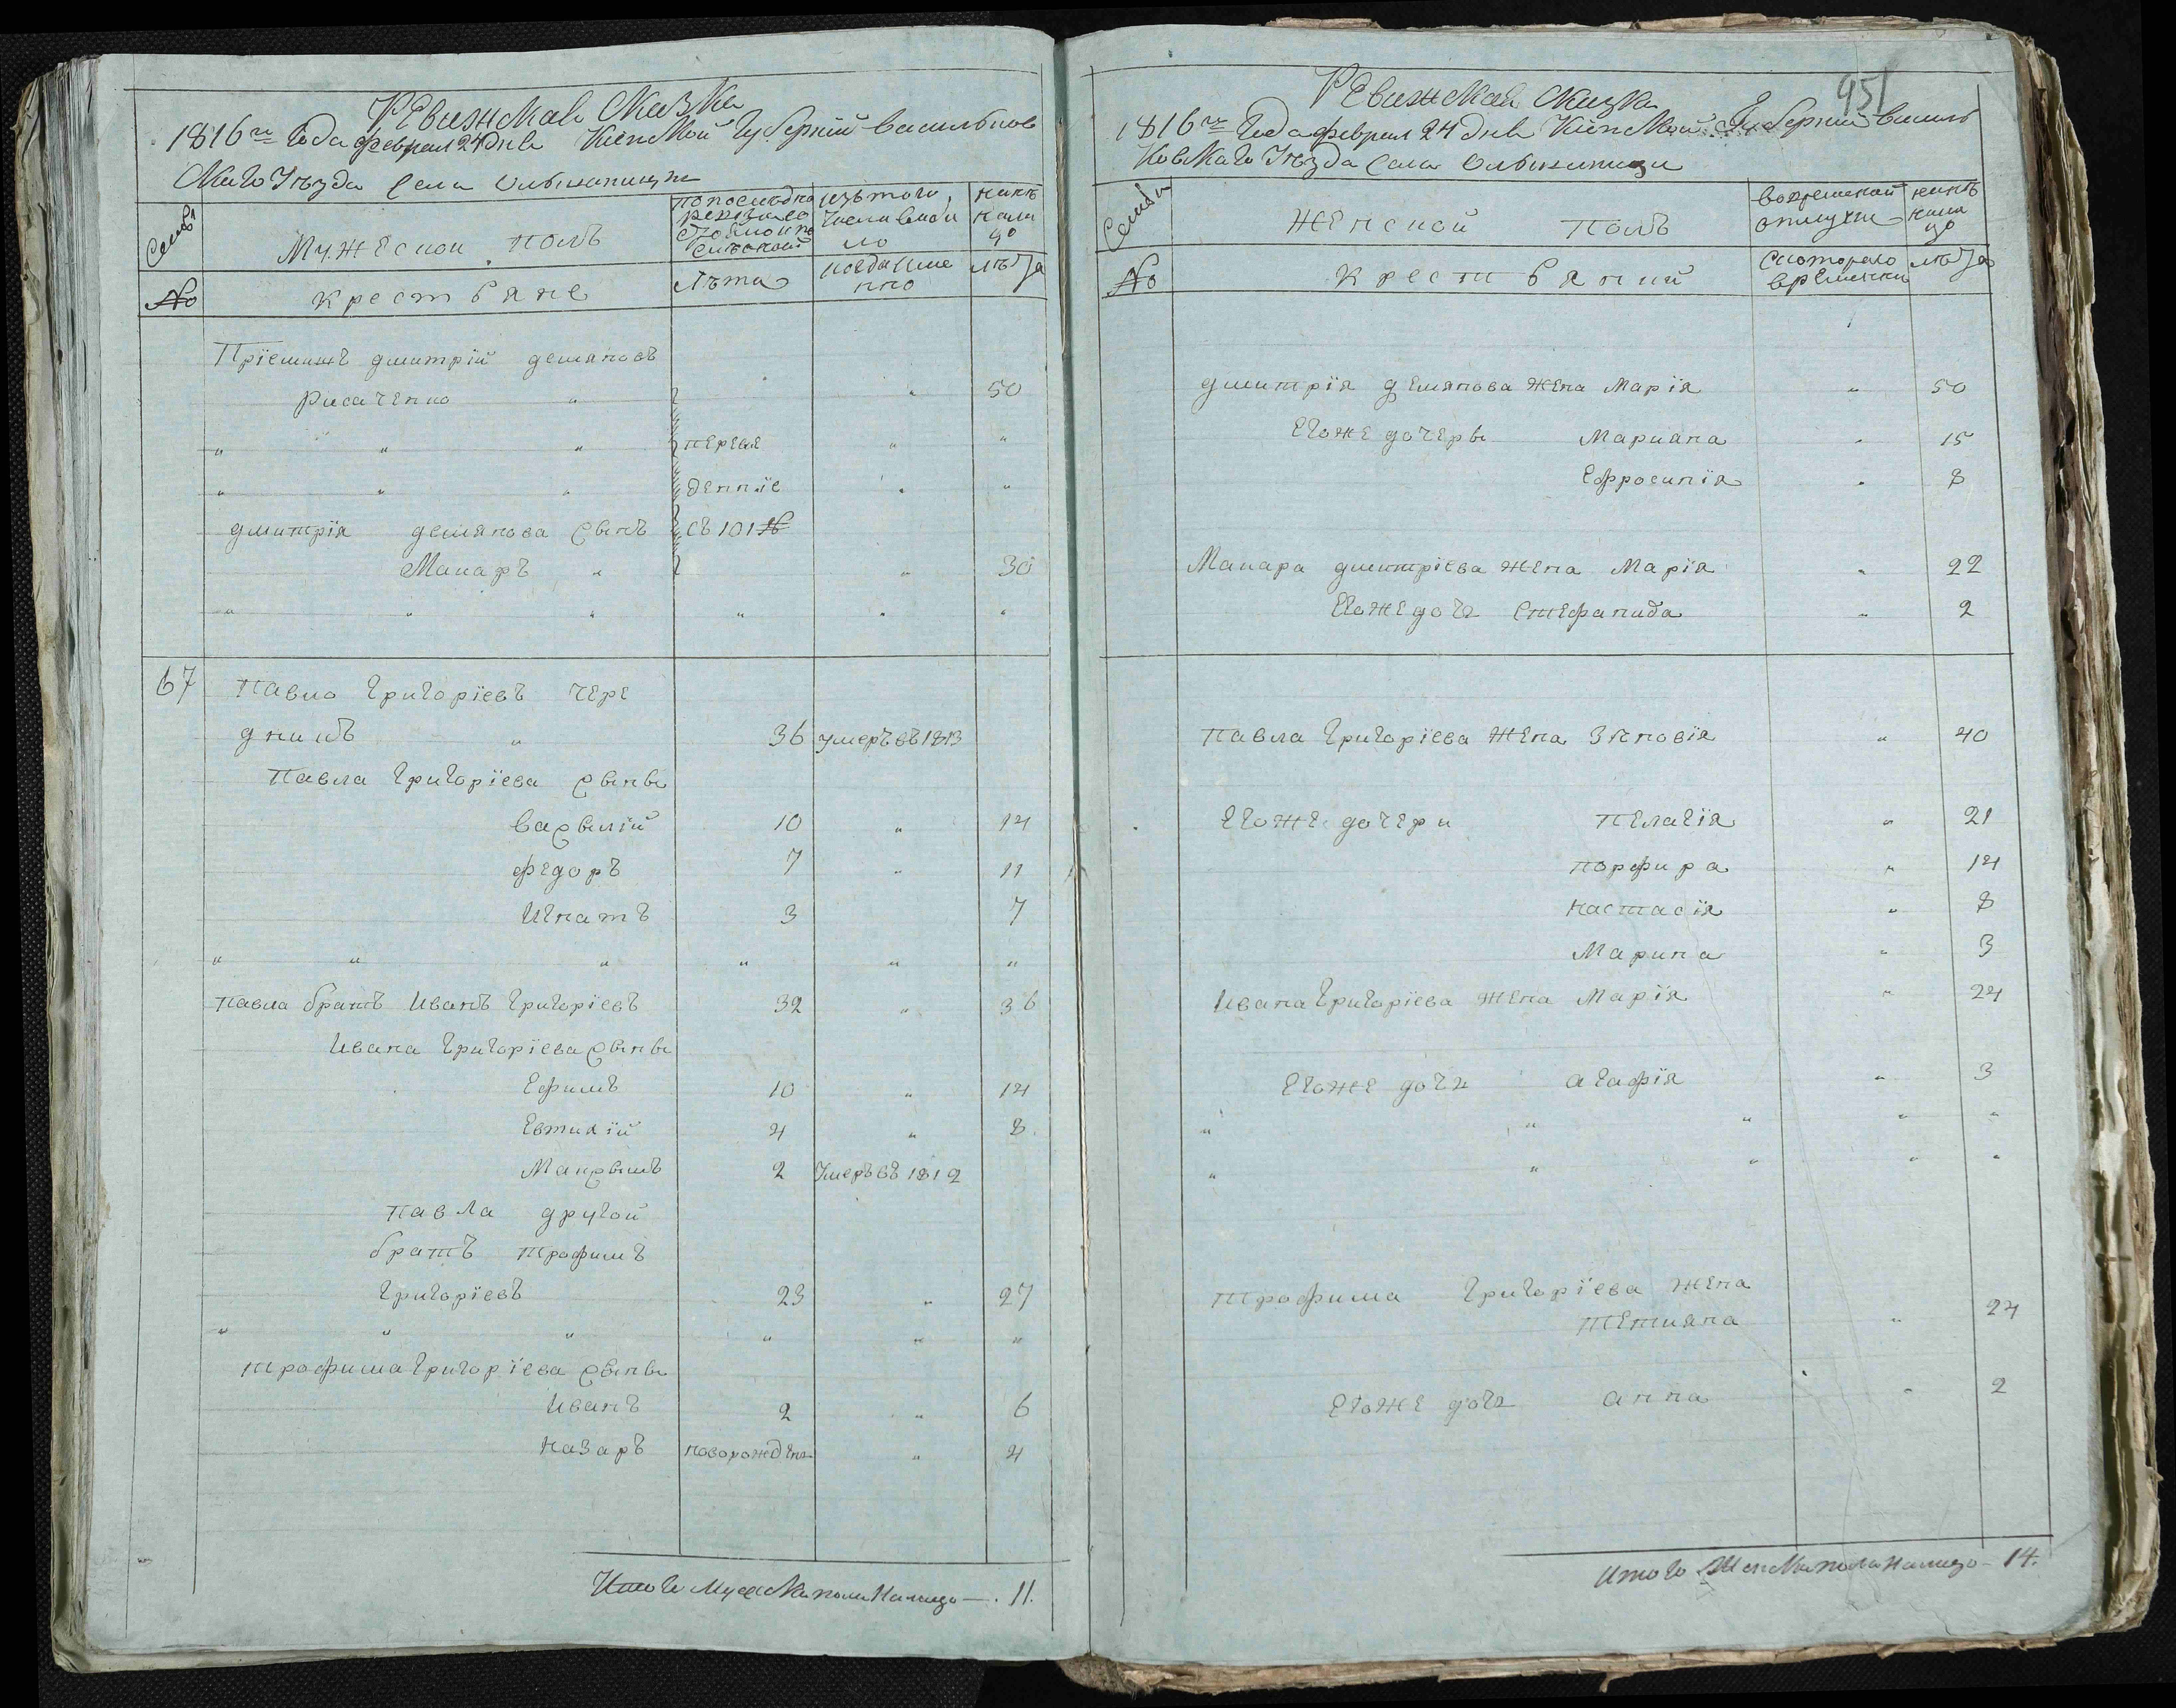 Ревижская сказка
1816го года февраля 24 дня Кіевской губерніи васильков
скаго уѣзда села
Семьи
Мужеской полъ
по последней ревизіи состояло
изъ того числа выбыло
нынѣ на лицо
№
крестьяне
Лѣта
когда именно
лѣта
Пріемишъ дмитрій демяновъ
рисаченко " " 50
" " " первве " "
" " " деннїе " "
дмитрія демянова сынъ съ 101 №
Макаръ " " 30
" " " " " "
67 Павло григорїевъ чере
дникъ " 36 умеръ въ 1813
Павла григорїева сыны
васылій 10 " 14
федоръ 7 " 11
Игнатъ 3 7
" " " " " "
Павла братъ Иванъ григорїевъ 32 " 36
Ивана григорїева сыны
Ефимъ 10 " 14
Евтихїй 4 " 8
Максымъ 2 умеръ въ 1812
Павла другой
братъ трофимъ
григорїевъ 23 " 27
" " " " " "
трофима григорїева сыны
Иванъ 2 " 6
Назаръ новорожден " 4
Итого мужеска пола налицо — 11.
951
Ревижская сказка
1816го года февраля 24 дня Кіевской губерніи василь
ковскаго уѣзда села
Семьи
Женской полъ
во временной отлучки
нынѣ на лицо
№
крестьянки
с котораго времени
лѣта
дмитрїя демянова жена Марїя " 50
Егоже дочеры Мариана " 15
Ефросинїя " 8
Макара дмитрїева жена Марїя " 22
Егоже дочь стефанида " 2
Павла григорїева жена Зѣновїя " 40
Егоже дочери пелагїя " 21
порфира " 14
настасїя " 8
Марина " 3
Ивана григорїева жена Марїя " 24
Егоже дочь агафїя " 3
" " " " "
" " " " "
трофима григорїева жена
тетияна " 24
Егоже дочь анна " 2
Итого женска пола налицо — 14.